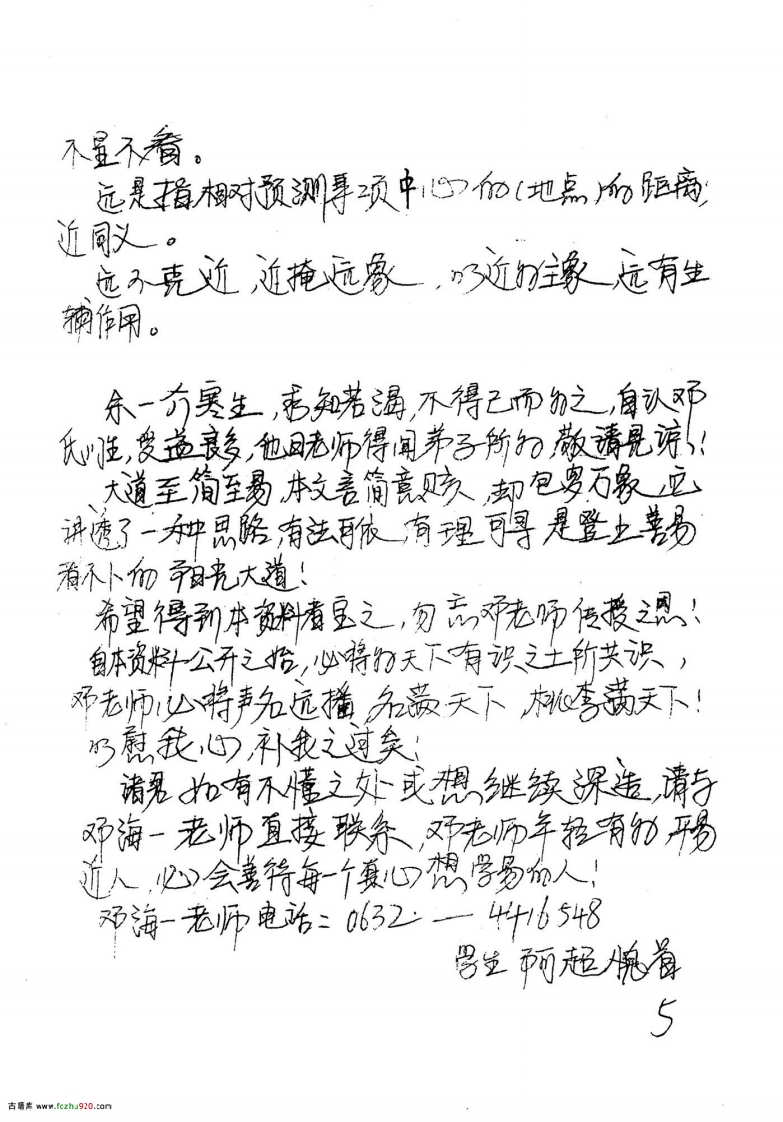 不显不看。
远是指相对预测事项中心的(地点)的距离,
近同义。
远不克近,近掩远象,以近为主象,远有生
辅作用。
余一介寒生,求知若渴,不得已而为之,自认邓
氏门生,受益良多,他日老师得闻弟子所为,敬请见谅!
大道至简至易,本文言简意赅,却包罗万象,它
讲透了一种思路,有法可依,有理可寻是登上善易
者不卜的阳光大道!
希望得到本资料者宝之,勿忘邓老师传授之恩!
自本资料公开之始,必将为天下有识之士所共识,
邓老师必将声名远播,名满天下,桃李满天下!
以慰我心,补我之过矣!
诸君如有不懂之处或想继续深造,请与
邓海一老师直接联系,邓老师年轻有为,平易
近人,必会善待每一个真心想学易的人!
邓海一老师电话:0632—4416548
学生 阿超 愧首
5
古籍库 www.fozhu920.com